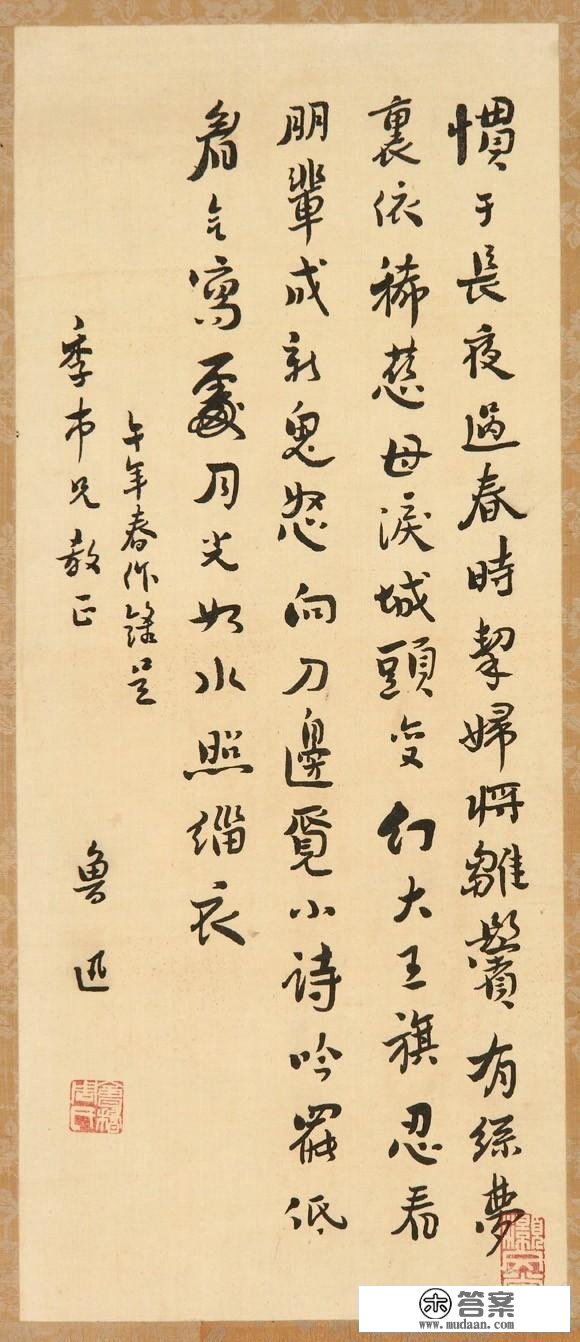 慣于長夜過春時挈婦將雛鬢有絲夢
裏依稀慈母淚城頭变幻大王旗忍看
朋輩成新鬼怒向刀邊覓小詩吟罷低
眉无寫處月光如水照緇衣
午年春作錄呈
季市兄教正
魯迅
答案
www.mudaan.com